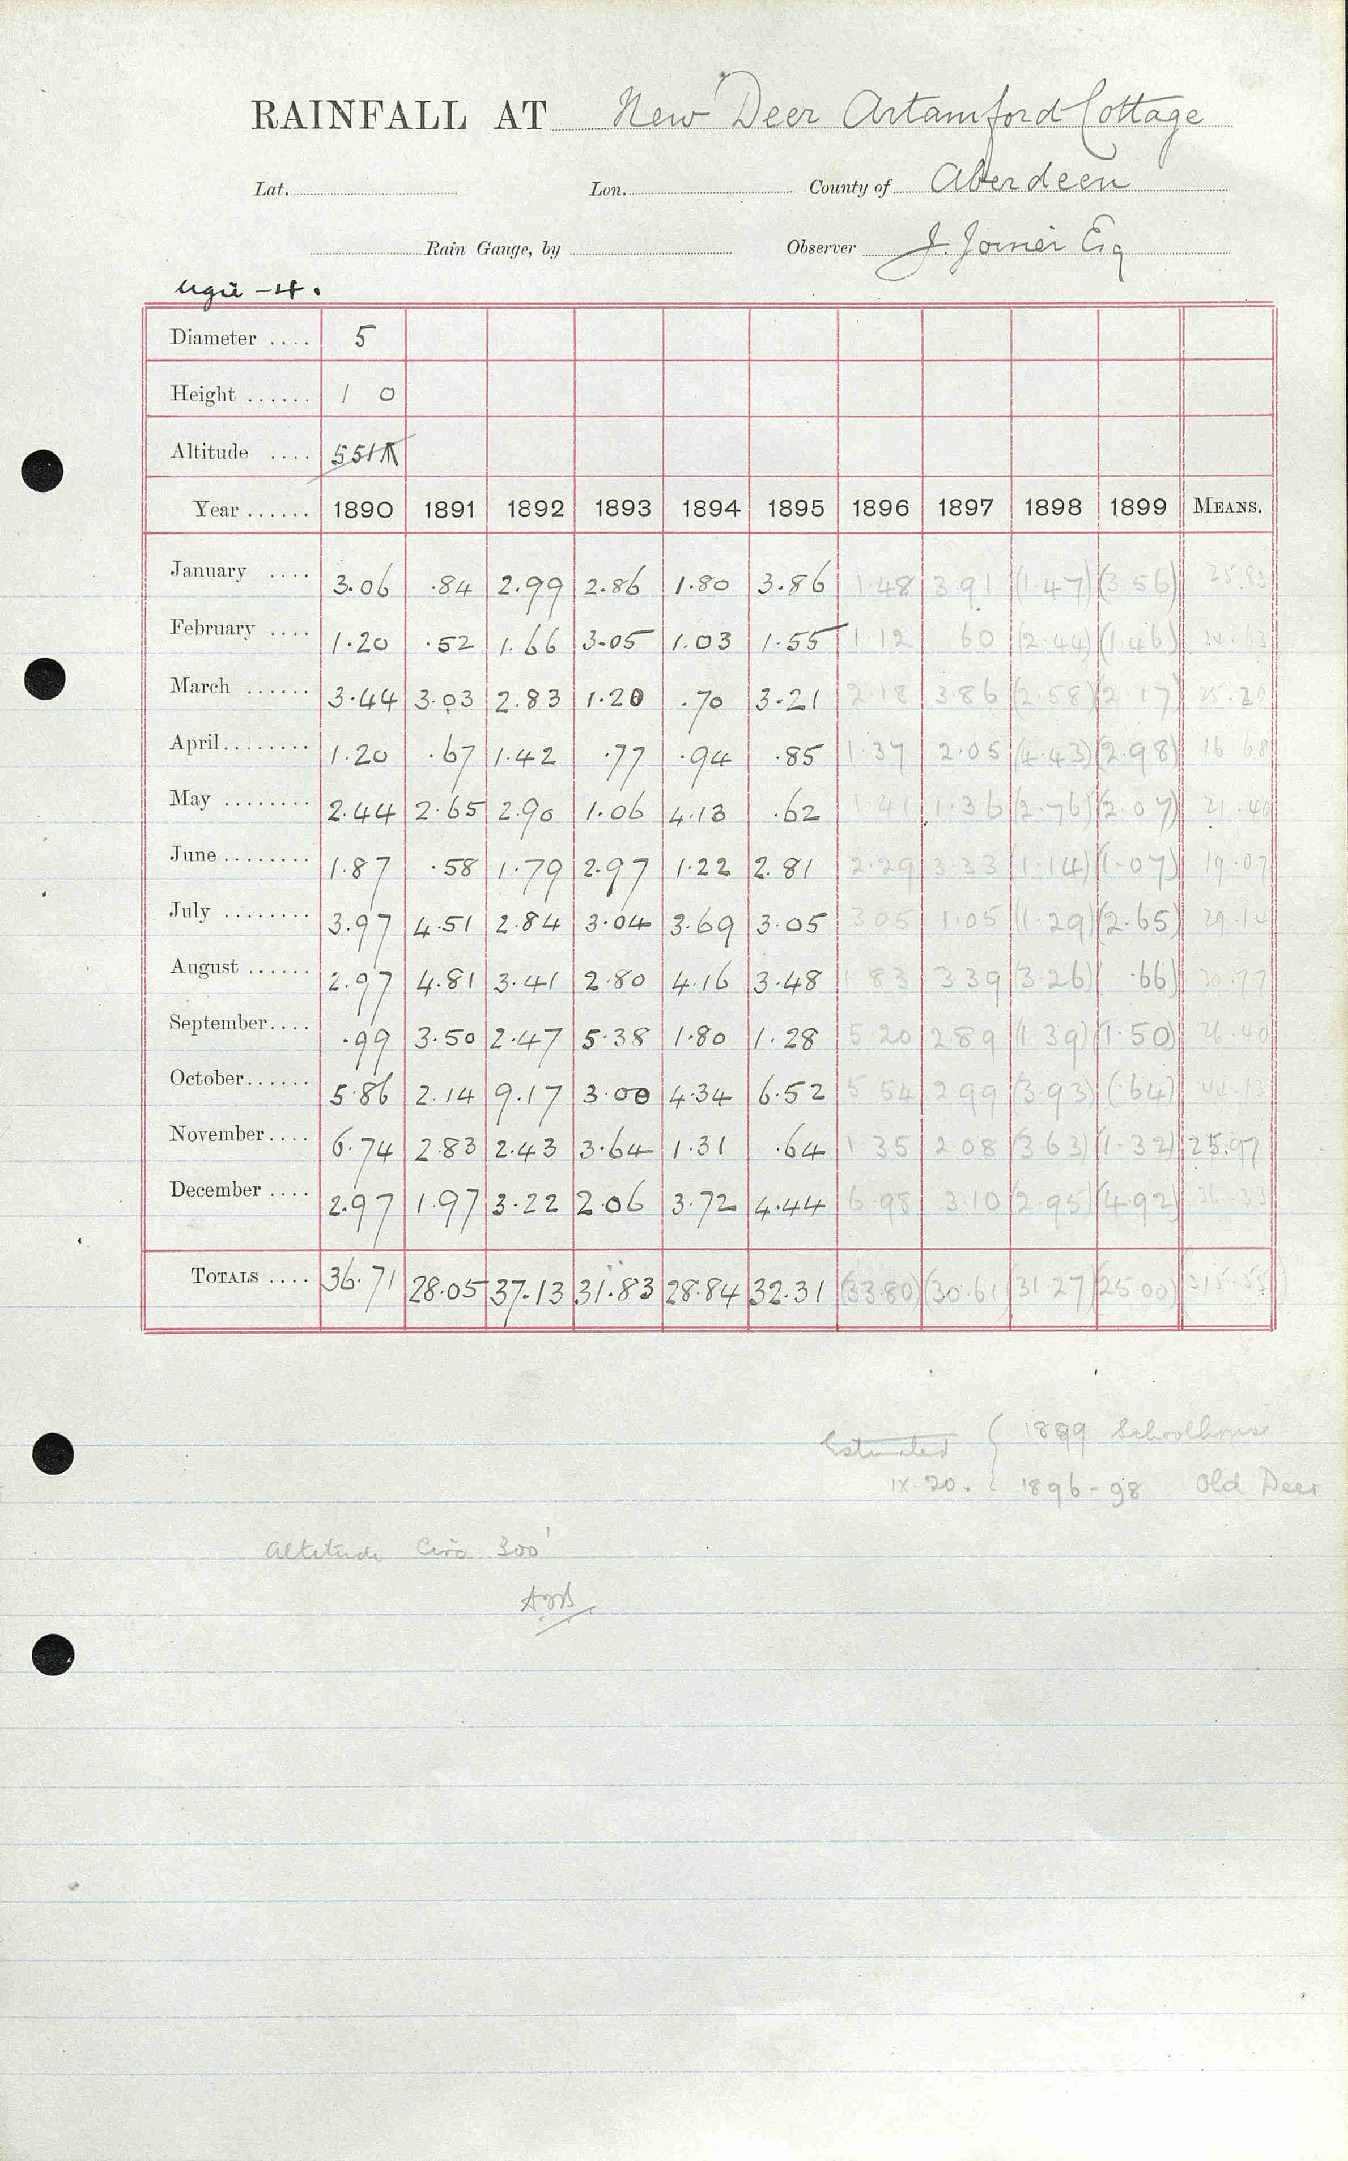 RAINFALL AT New Deer Artamford Cottage
Lat. Lon. County of Aberdeen
Rain Gauge, by Observer J. Joiner Esq
Ugie - 4.
Diameter .... 5
Height ...... 1 0
Altitude .... 551
Year ...... 1890 1891 1892 1893 1894 1895 1896 1897 1898 1899 MEANS.
January .... 3.06 .84 2.99 2.86 1.80 3.86 1.48 3.91 (1.47) (3.56) 25.83
February .... 1.20 .52 1.66 3.05 1.03 1.55 1.12 60 (2.44) (1.46)
March ...... 3.44 3.03 2.83 1.20 .70 3.21 2.18 3.86 (2.58) (2.17) 25.20
April........ 1.20 .67 1.42 .77 .94 .85 1.37 2.05 (4.43) (2.98) 16 68
May ........ 2.44 2.65 2.90 1.06 4.13 .62 1.41 1.36 (2.76) (2.07) 21.40
June ........ 1.87 .58 1.79 2.97 1.22 2.81 2.29 3.33 (1.14) (1.07) 19.07
July ........ 3.97 4.51 2.84 3.04 3.69 3.05 3 05 1.05 (1.29) (2.65) 29.14
August ...... 2.97 4.81 3.41 2.80 4.16 3.48 1 83 3 39 (3.26) (.66) 30.77
September.... .99 3.50 2.47 5.38 1.80 1.28 5 20 2 89 (1 39) (1.50) 26.40
October...... 5.86 2.14 9.17 3.00 4.34 6.52 5 54 2 99 (3.93) (.64) 44.13
November.... 6.74 2.83 2.43 3.64 1.31 .64 1 35 2.08 (3 63) (1.32) 25.97
December .... 2.97 1.97 3.22 2.06 3.72 4.44 6.98 3.10 (2.95) (4.92) 36.33
TOTALS .... 36.71 28.05 37.13 31.83 28.84 32.31 (33.80) (30.61) (31 27) (25 00) 315.55
Estimated { 1899 Schoolhouse
IX.20. 1896-98 Old Deer
Altitude Circa 300'